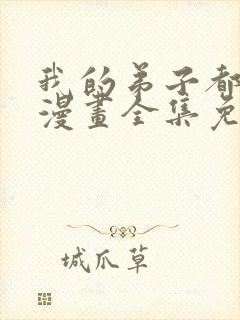 我的弟子都
漫畫全集免
城爪草